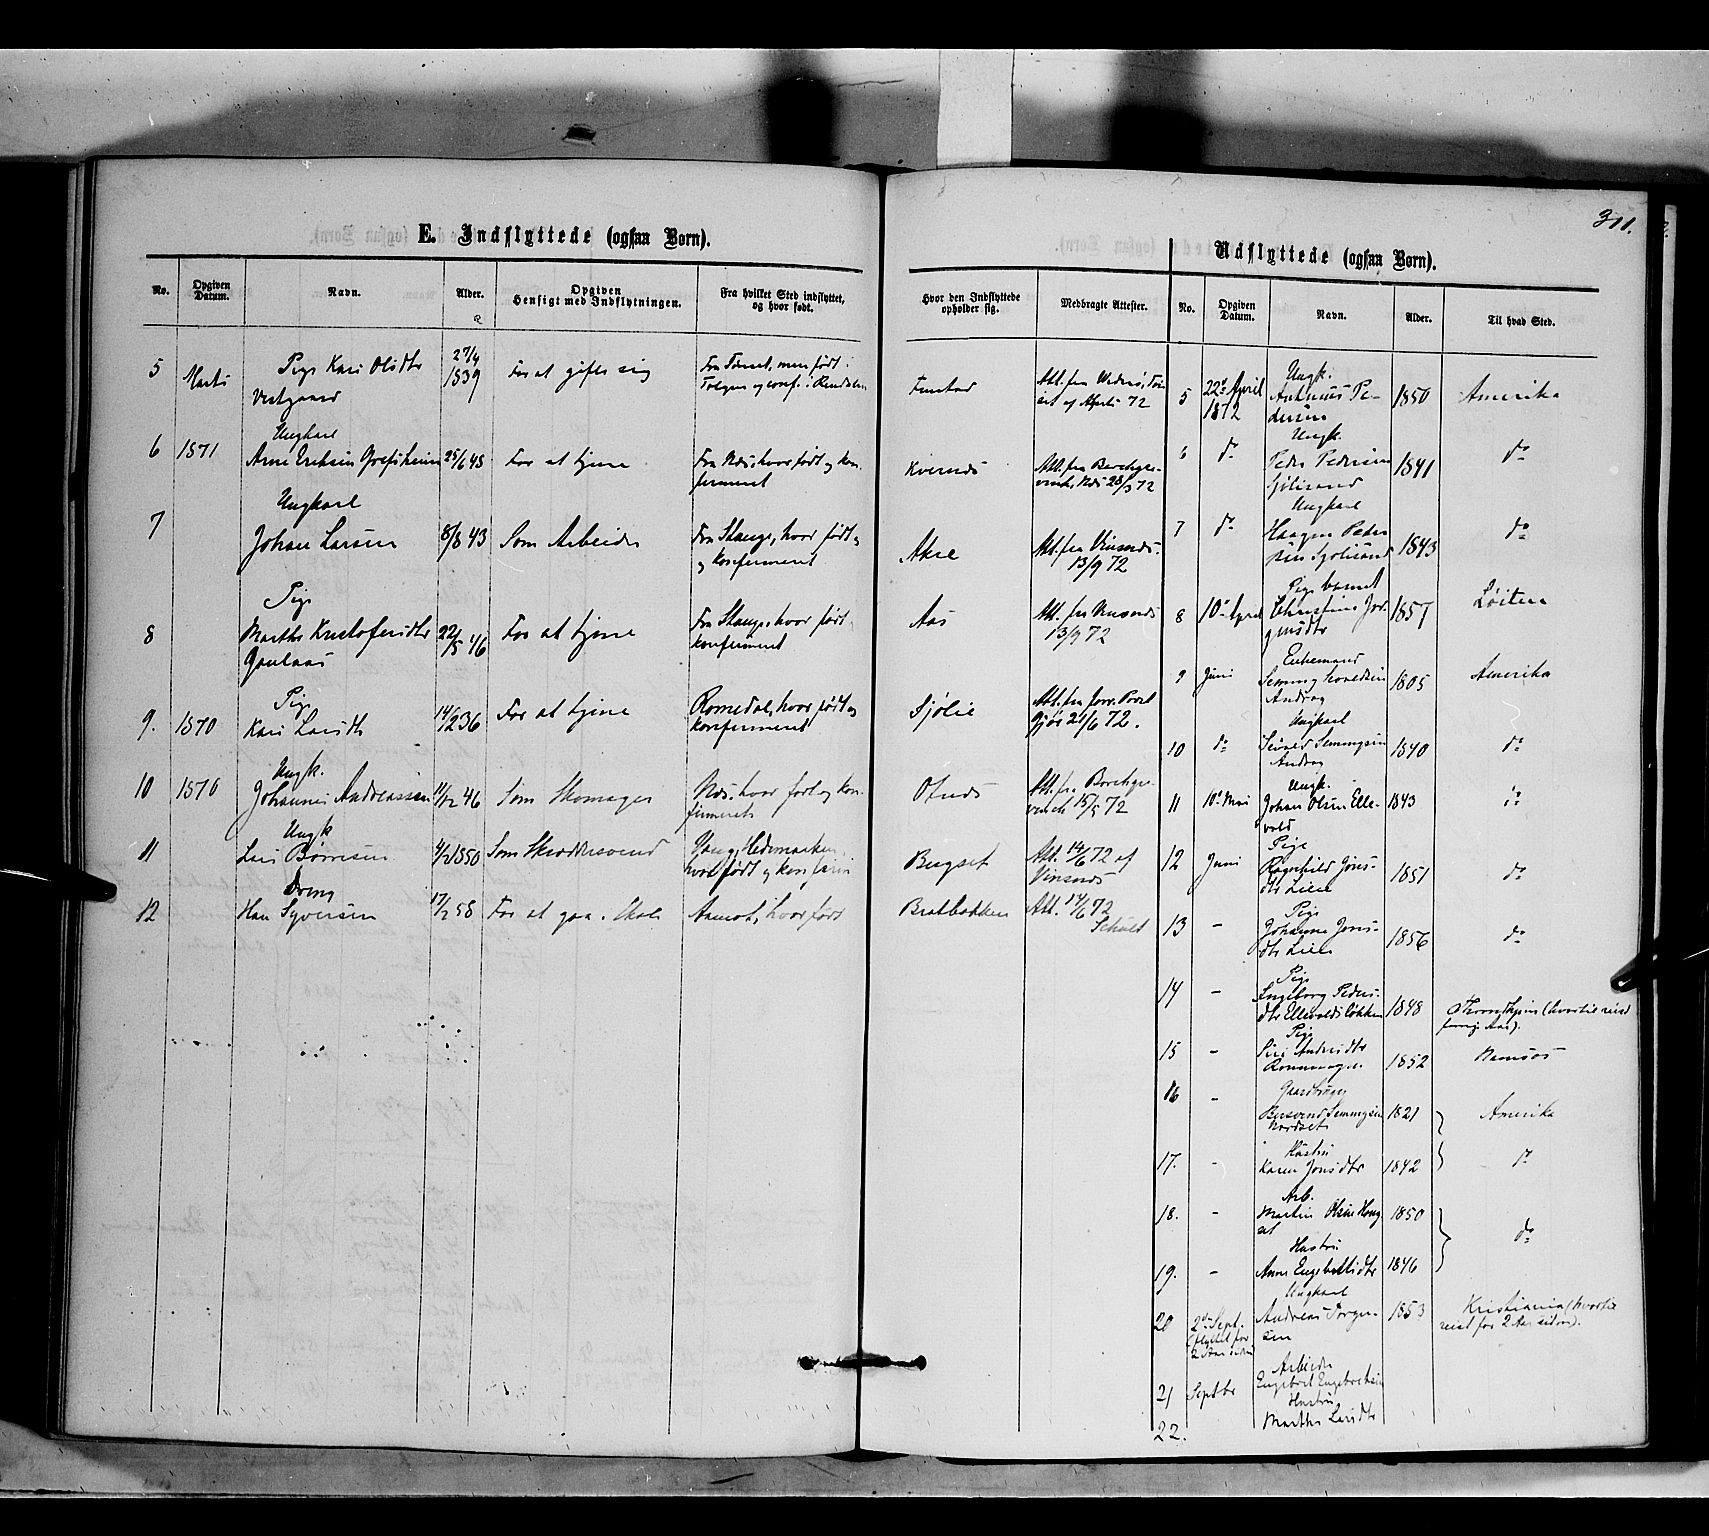 311.
E. Indflyttede (ogsaa Børn).
No.
Opgiven Datum.
Navn.
Alder.
Opgiven Hensigt med Indflytningen.
Fra hvilket Sted indflyttet, og hvor født.
Hvor den Indflyttede opholder sig.
Medbragte Attester.
5 Marts Pige Kari Olsdtr 27/4 1839 For at gifte sig Fra Tønset, men født i
Tolgen og conf. i Rendalen
Att. fra
72
6 1871 Ungkarl
Arne Eriksen 25/6 48 For at tjene Fra Næs, hvor født og kon-
firmeret Kvernæs Att. fra
Næs 28/3 72
7 Ungkarl
Johan Larsen 8/8 43 Som Arbeider Fra Stange, hvor født
og konfirmeret Akre Att. fra Vinsnæs
13/9 72
8 Pige
Marthe Kristofersdtr 22/5 46 For at tjene Fra Stange, hvor født
konfirmeret Aas Att. fra Vinsnæs
13/9 72
9. 1870 Pige
Kari Larsdtr 14/2 36 For at tjene Romedal, hvor født og
konfirmeret Sjølie Att. fra
21/6 72.
10 1870 Ungk.
Johannes Andreassen 11/12 46 Som Skomager Næs, hvor født og kon-
firmeret Otnæs Att. fra
15/5 72
11 Ungk
Lars Børresen 4/2 1850 Som Skræddersvend Vang, Hedemarken,
hvor født og konfirm Bergset Att. 14/6 72 af
Vinsnæs
12 Dreng
Han Syversen 17/2 58 For at gaa i Skole Aamot, hvor født Bratbakken Att. 14/6 72
Schult
Udflyttede (ogsaa Børn).
No.
Opgiven Datum.
Navn.
Alder.
Til hvad Sted.
5 22de April
1872 Ungk.
Anthonius Pe-
dersen 1850 Amerika
6 do Ungk.
Peder Pedersen
Sjølisand 1841 do
7 do Ungkarl
Haagen Peder
sen Sjølisand 1843 do
8 10de April Pigebarnet
Christine Jør-
gensdtr 1857 Løiten
9 Juni Enkemand
Semming
Andraa 1805 Amerika
10 do Ungkarl
Semmingsen
Andraa 1840 do
11 10de Mai Ungk.
Johan Olsen Elle-
vold 1843 do
12 Juni Pige
Ragnhild Jons-
dtr Lien 1851 do
13 - Pige
Johanne Jons-
dtr Lien 1856 do
14 - Pige
Ingeborg Peders-
dtr Ellevoldsløkken 1848 Throndhjem (hvortil reist
forrige Aar).
15 - Pige
Siri Andersdtr 1852 Namsos
16 - Gaardbruger
Semmingsen
Nordset 1821 Amerika
17. - Hustru
Karen Jonsdtr 1842 do
18. - Arb.
Martin Olsen Haug-
set 1850 do
19. - Hustru
Anne Engebretsdtr 1846
20 2den Sept.
(flyttet for
2 Aar siden) Ungkarl
Andreas Jørgen-
sen 1853 Kristiania (hvortil
reist for 2 Aar siden).
21 Septbr Arbeider
Engebret Engebretsen
22. Hustru
Marthe Larsdtr